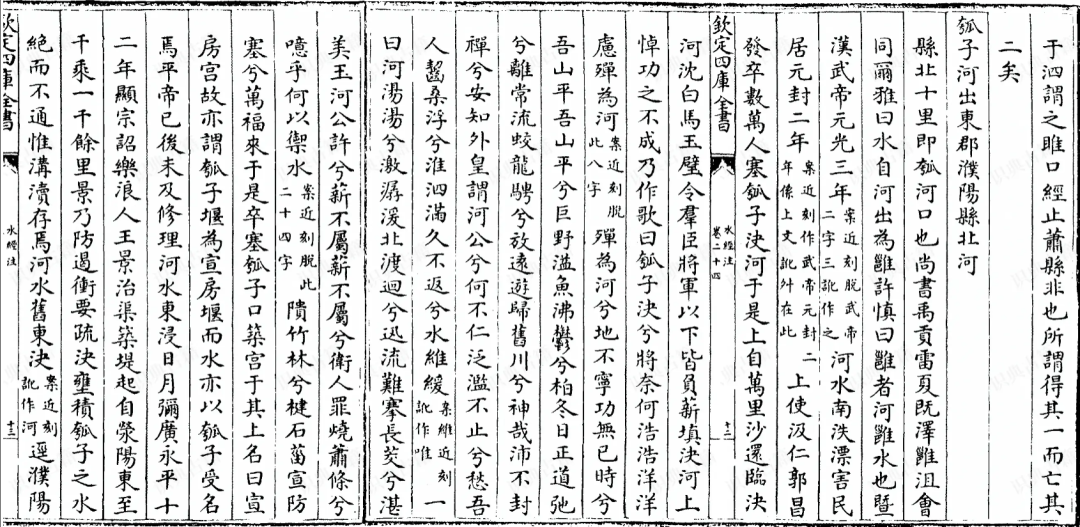 于泗謂之睢口經止蕭縣非也所謂得其一而亡其
二矣
瓠子河出東郡濮陽縣北河
縣北十里即瓠河口也尚書禹貢雷夏既澤雝沮會
同爾雅曰水自河出為雝許慎曰雝者河雝水也暨
漢武帝元光三年案近刻脫武帝二字三訛作之河水南泆漂害民
居元封二年案近刻作武帝元封二年係上文訛舛在此上使汲仁郭昌
發卒數萬人塞瓠子決河于是上自萬里沙還臨決
欽定四庫全書
水經注
卷二十四
十三
河沈白馬玉璧令羣臣將軍以下皆負薪填決河上
悼功之不成乃作歌曰瓠子決兮將奈何浩浩洋洋
慮殫為河案近刻脫此八字殫為河兮地不寧功無已時兮
吾山平吾山平兮巨野溢魚沸鬱兮柏冬日正道弛
兮離常流蛟龍騁兮放遠遊歸舊川兮神哉沛不封
禪兮安知外皇謂河公兮何不仁泛濫不止兮愁吾
人齧桑浮兮淮泗滿久不返兮水維緩案維近刻訛作唯一
曰河湯湯兮激潺湲北渡迴兮迅流難搴長茭兮湛
美玉河公許兮薪不屬薪不屬兮衛人罪燒蕭條兮
噫乎何以禦水案近刻脫此二十四字隤竹林兮楗石菑宣防
塞兮萬福來于是卒塞瓠子口築宮于其上名曰宣
房宮故亦謂瓠子堰為宣房堰而水亦以瓠子受名
焉平帝已後未及修理河水東浸日月彌廣永平十
二年顯宗詔樂浪人王景治渠築堤起自滎陽東至
千乘一千餘里景乃防遏衝要疏決壅積瓠子之水
絕而不通惟溝瀆存焉河水舊東決案近刻訛作河逕濮陽
欽定四庫全書
水經注
十三